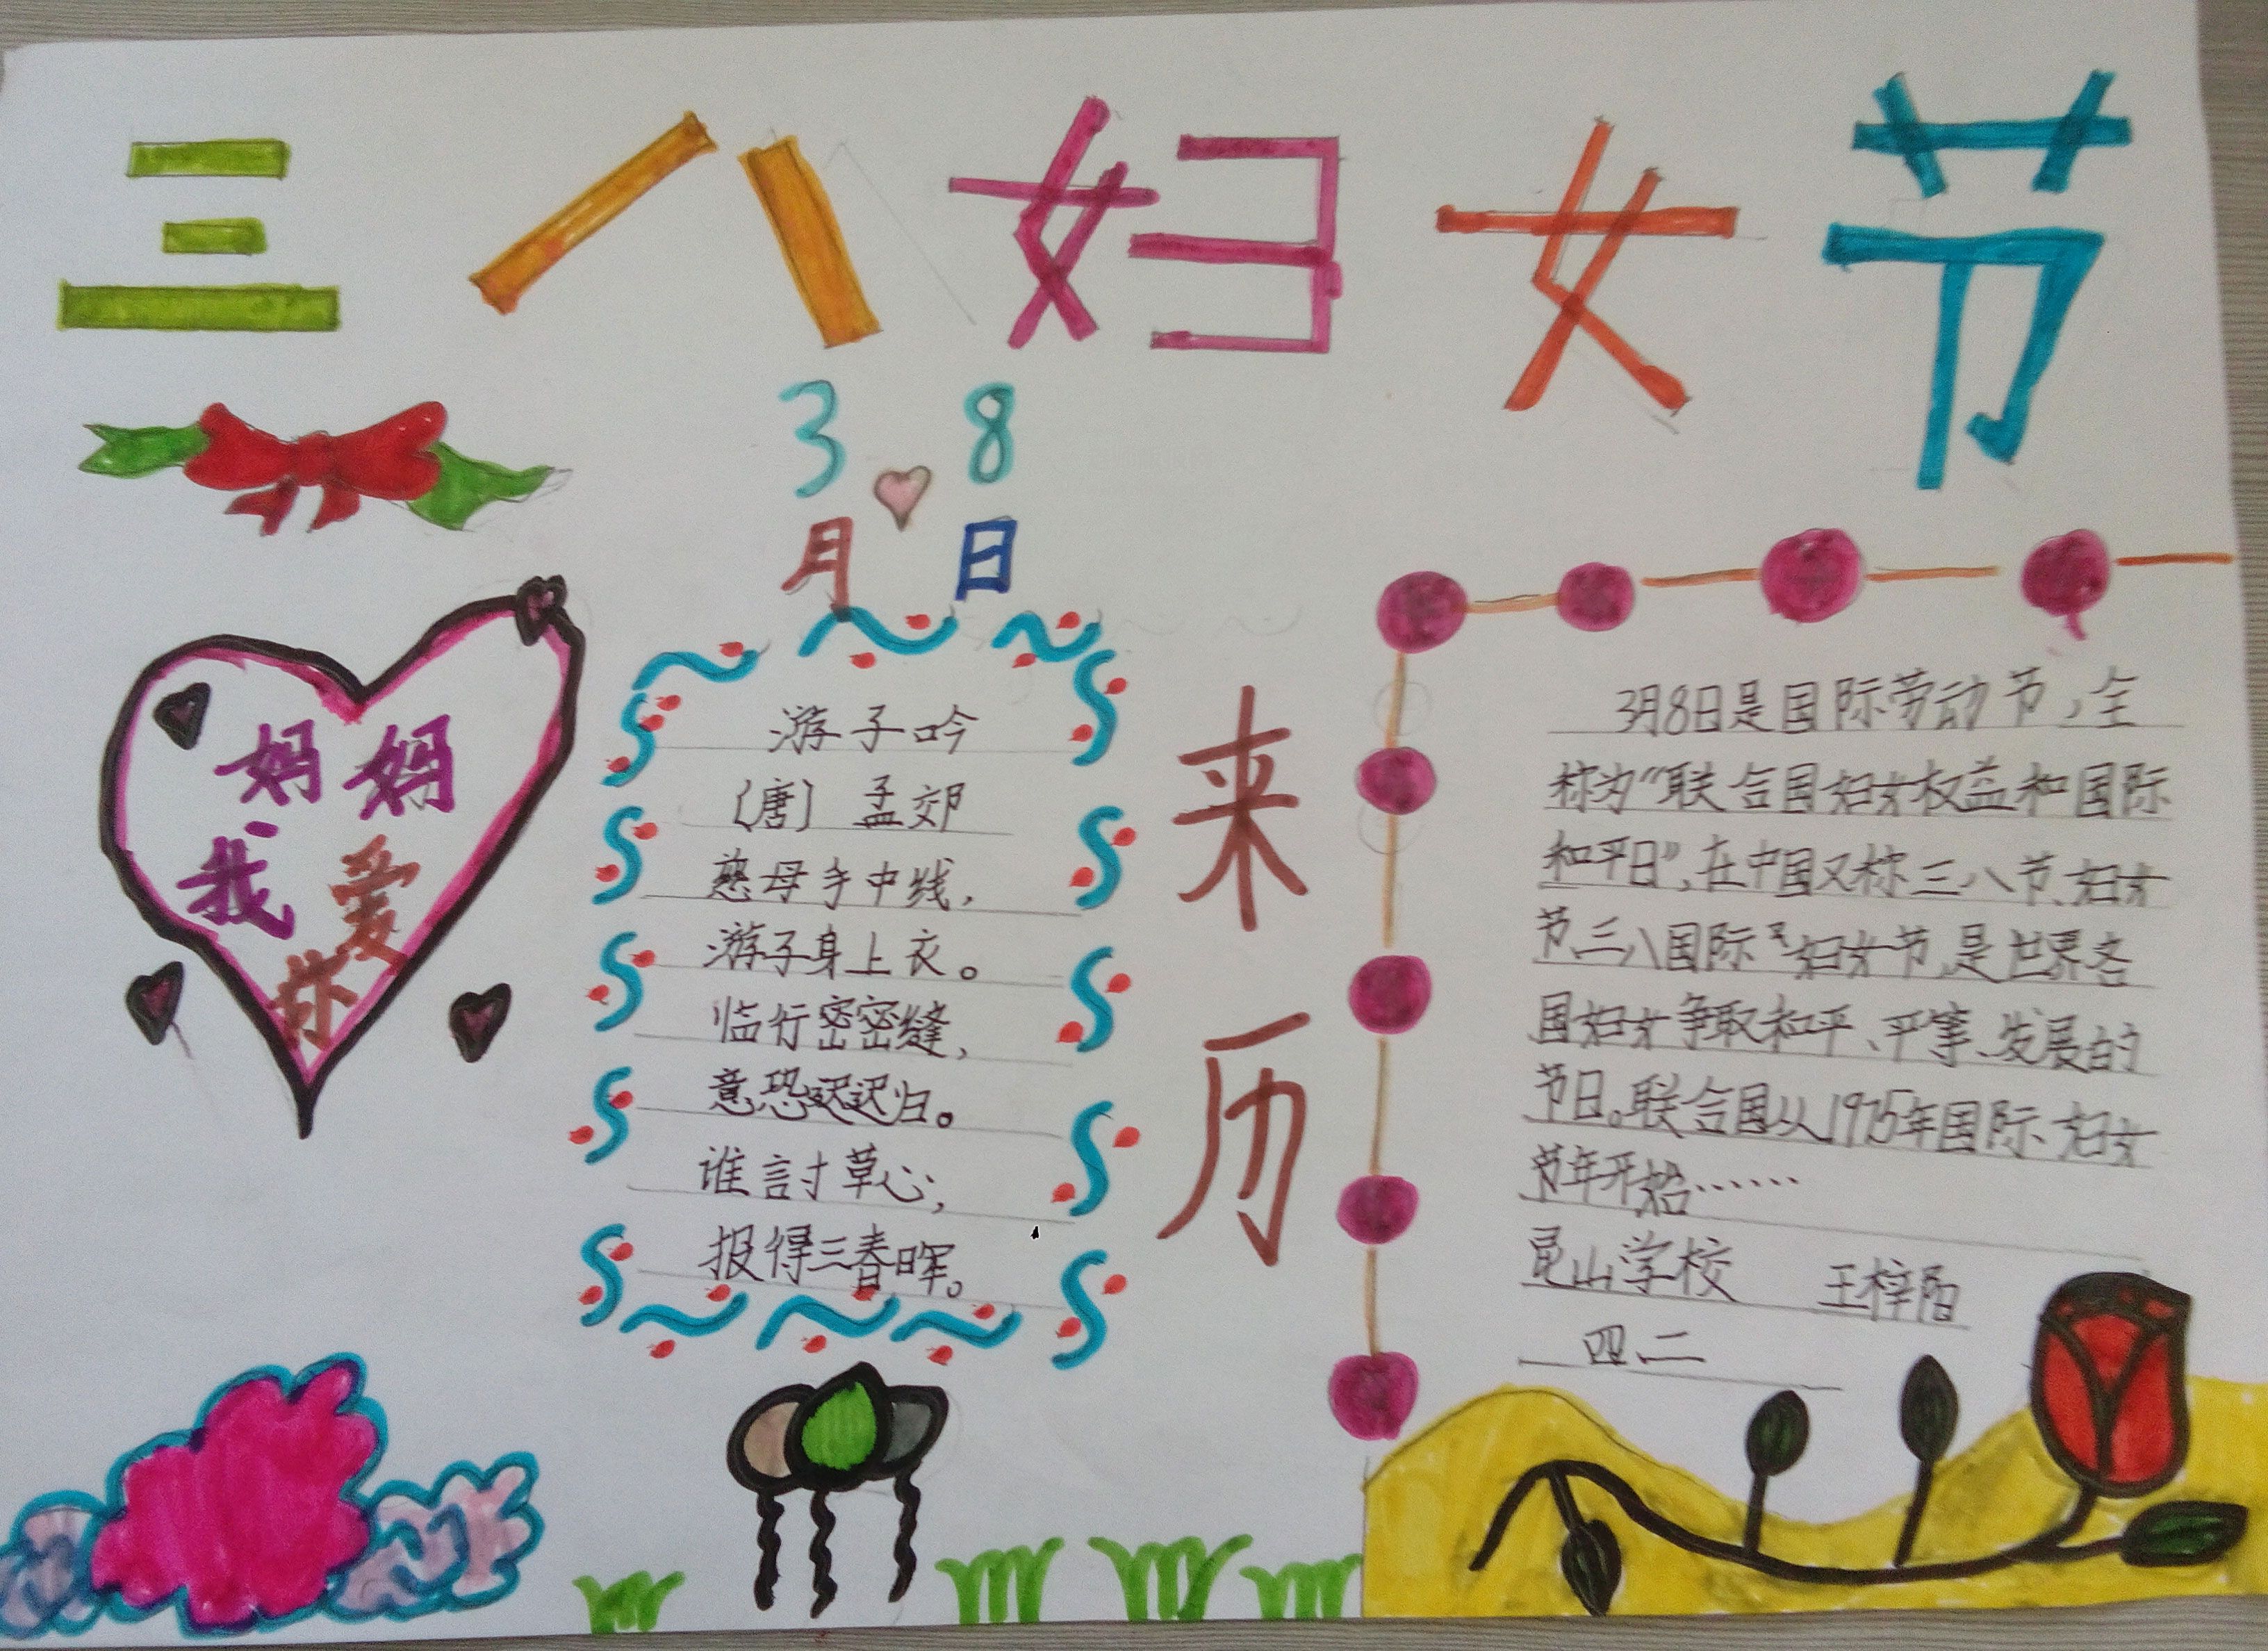 三八妇女节
3 8
月 日
妈妈
我爱
你
游子吟
〔唐〕 孟郊
慈母手中线，
游子身上衣。
临行密密缝，
意恐迟迟归。
谁討草心，
报得三春晖。
来
历
3月8日是国际劳动节，全
称为“联合国妇女权益和国际
和平日”，在中国又称三八节、妇女
节、三八国际妇女节，是世界各
国妇女争取和平、平等、发展的
节日。联合国从1975年国际妇女
节年开始……
昆山学校 王梓
四二